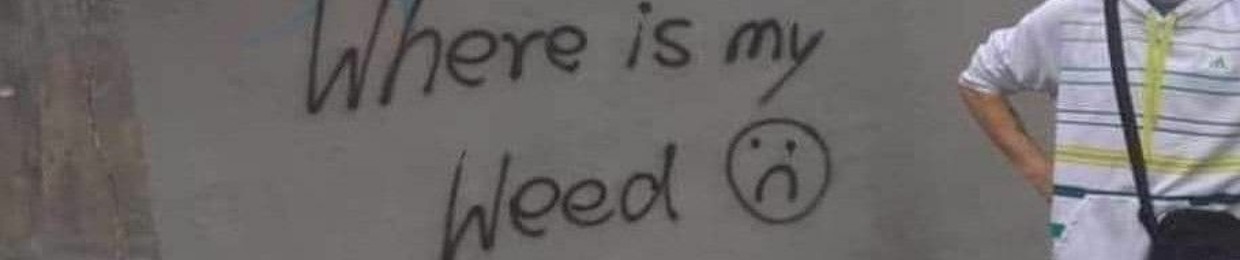 Where is my
Weed ☹